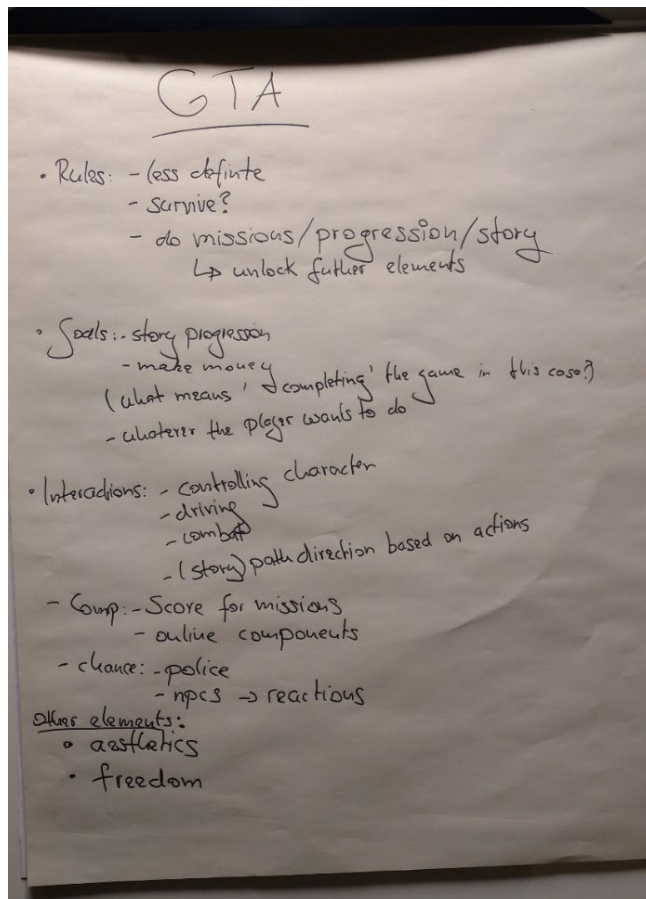 GTA
• Rules: - less definte
- survive?
- do missions/progression/story
↳ unlock futher elements
• Goals: - story progression
- make money
(what means 'completing' the game in this case?)
- whatever the player wants to do
• Interactions: - controlling character
- driving
- combat
- (story) path direction based on actions
- Comp: - Score for missions
- online components
- chance: - police
- npcs → reactions
Other elements:
• aesthetics
• freedom